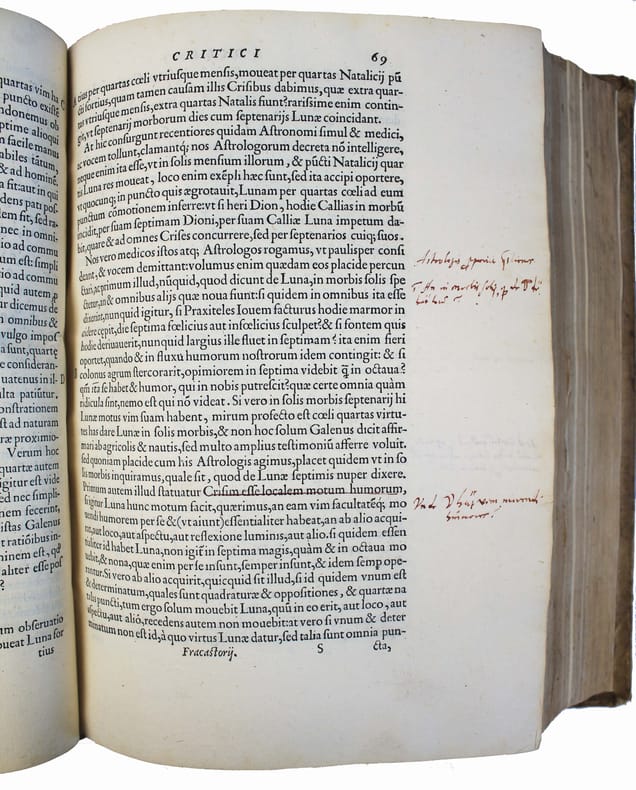 quartas vim ha
puncto existē
ndonemus ob
ptime alioqui
n facile manus
abiles tātum,
& ad hominē.
a sit: aut in qui
dens pati pos-
dem sit, sed ra-
nec in omni-
io ad commu
um est: simpli
tio ad commu
quid autem
ur dicemus de
n omnibus &
vulgo impos
a sunt, quartę
consyderan.
uatenus in il-
ulta patiūtur,
onstrationem
st ad naturam
ræ proximio-
Verum hoc
quartæ autem
igitur est vide
ed nec simpli-
nem fecerint,
istas Galenus
t ratiōibus in-
minem est, qđ
aliter esse pos
?
um obseruatio
oueat Luna for
tius
CRITICI 69
tius per quartas cœli vtriusque mensis, moueat per quartas Natalicij pū
cti fortius, quam tamen causam illis Crisibus dabimus, quæ extra quar-
tas vtriusque mensis, extra quartas Natalis fiunt? rarissime enim contin-
git, vt septenarij morborum dies cum septenarijs Lunæ coincidant.
At hic consurgunt recentiores quidam Astronomi simul & medici,
ac vocem tollunt, clamantq; nos Astrologorum decreta nō intelligere,
neque enim ita esse, vt in solis mensium illorum, & pūcti Natalicij quar
tis Luna res moueat, loco enim exēpli hæc sunt, sed ita accipi oportere,
vt quocunq; in puncto quis ægrotauit, Lunam per quartas cœli ad eum
punctum cōmotionem inferre: vt si heri Dion, hodie Callias in morbū
incidit, per suam septimam Dioni, per suam Calliæ Luna impetum da-
bit, quare & ad omnes Crises concurrere, sed per septenarios cuiq; suos.
Nos vero medicos istos atq; Astrologos rogamus, vt paulisper consi
deant, & vocem demittant: volumus enim quædam eos placide percun
ctari, ac primum illud, nūquid, quod dicunt de Luna, in morbis solis spe
ctetur, an & omnibus alijs quæ noua fiunt: si quidem in omnibus ita esse
dixerint, nunquid igitur, si Praxiteles Iouem facturus hodie marmor in
cidere cępit, die septima fœlicius aut infœlicius sculpet? & si fontem quis
hodie deriuauerit, nunquid largius ille fluet in septimam? ita enim fieri
oportet, quando & in fluxu humorum nostrorum idem contingit: & si
colonus agrum stercorarit, opimiorem in septima videbit q̄ in octaua?
qm̄ ita se habet & humor, qui in nobis putrescit? quæ certe omnia quàm
ridicula sint, nemo est qui nō videat. Si vero in solis morbis septenarij hi
Lunæ motus vim suam habent, mirum profecto est cœli quartas virtu-
tes has dare Lunæ in solis morbis, & non hoc solum Galenus dicit affir-
mari ab agricolis & nautis, sed multo amplius testimoniū afferre voluit.
sed quoniam placide cum his Astrologis agimus, placet quidem vt in so
lis morbis inquiramus, quale sit, quod de Lunæ septimis nuper dixere.
Primum autem illud statuatur Crisim esse localem motum humorum,
si igitur Luna hunc motum facit, quærimus, an eam vim facultatēq; mo
uendi humorem per se & (vt aiunt) essentialiter habeat, an ab alio acqui-
rat, aut loco, aut aspectu, aut reflexione luminis, aut alio. si quidem essen
tialiter id habet Luna, non igit̄ in septima magis, quàm & in octaua mo
uebit, & nona, quæ enim per se insunt, semper insunt, & idem semp ope-
rantur. Si vero ab alio acquirit, quicquid sit illud, si id quidem vnum est
& determinatum, quales sunt quadraturæ & oppositiones, & quartæ na
talis puncti, tum ergo solum mouebit Luna, quū in eo erit, aut loco, aut
aspectu, aut aliō, recedens autem non mouebit: at vero si vnum & deter
minatum non est id, à quo virtus Lunæ datur, sed talia sunt omnia pun-
Fracastorij. S cta,